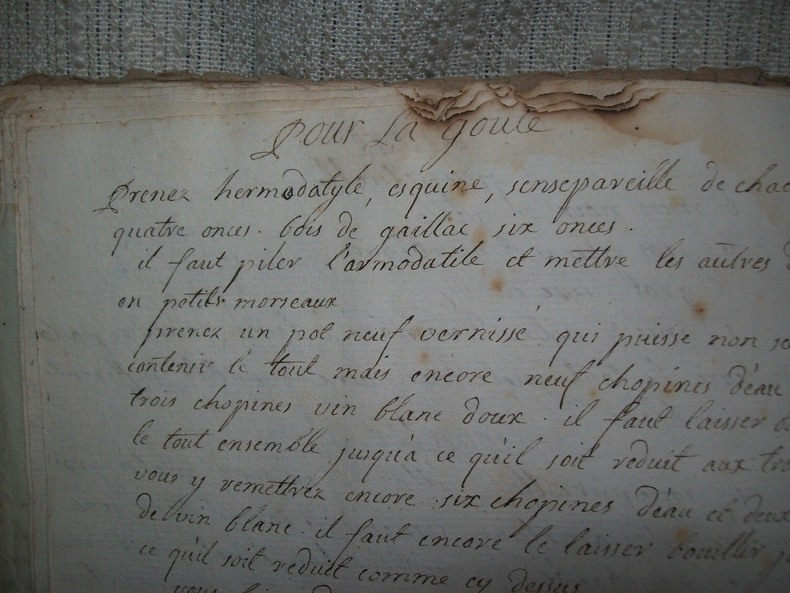 Pour La Goute
Prenez hermodatyle, esquine, sensepareille de chac
quatre onces. bois de gaillac six onces.
il faut piler l'armodatile et mettre les autres
en petits morseaux
prenez un pot neuf vernissé qui puisse non
contenir le tout mais encore neuf chopines d'eau
trois chopines vin blanc doux. il faut laisser
le tout ensemble jusqu'a ce qu'il soit reduit aux
vous y remettrez encore six chopines d'eau et deux
de vin blanc. il faut encore le laisser bouillir
ce qu'il soit reduit comme cy dessus